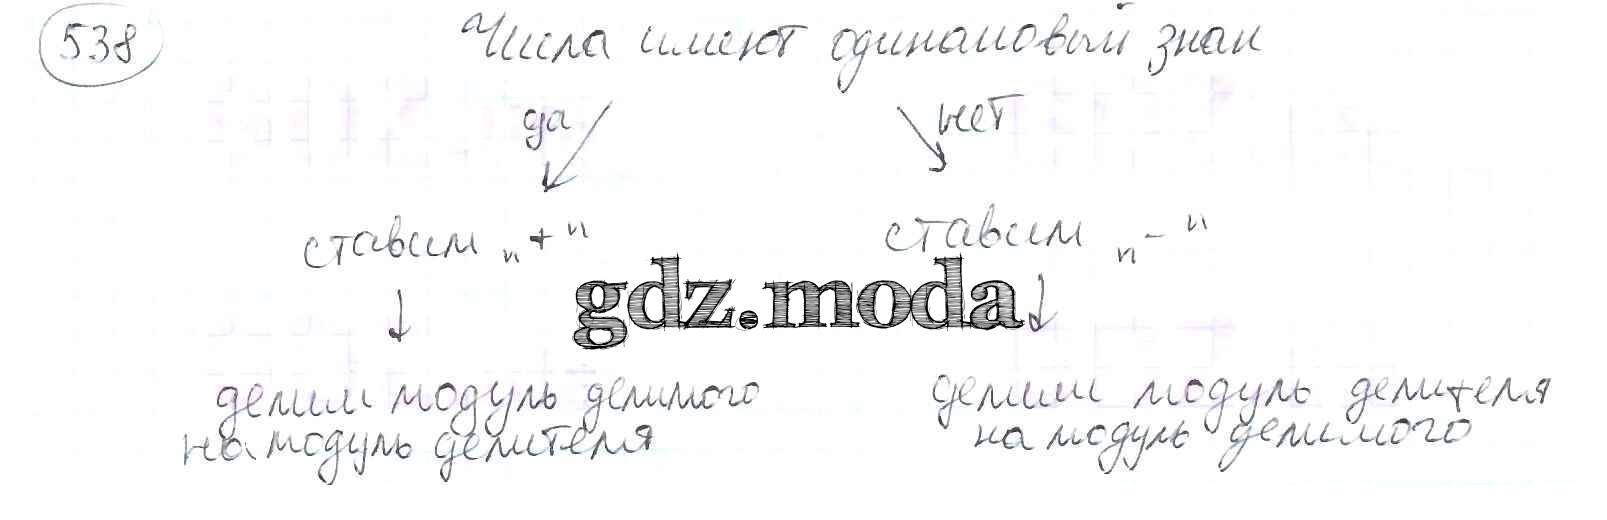 538
Числа имеют одинаковый знак
да
нет
ставим „+"
ставим „-"
gdz.moda
делим модуль делимого
на модуль делителя
делим модуль делителя
на модуль делимого